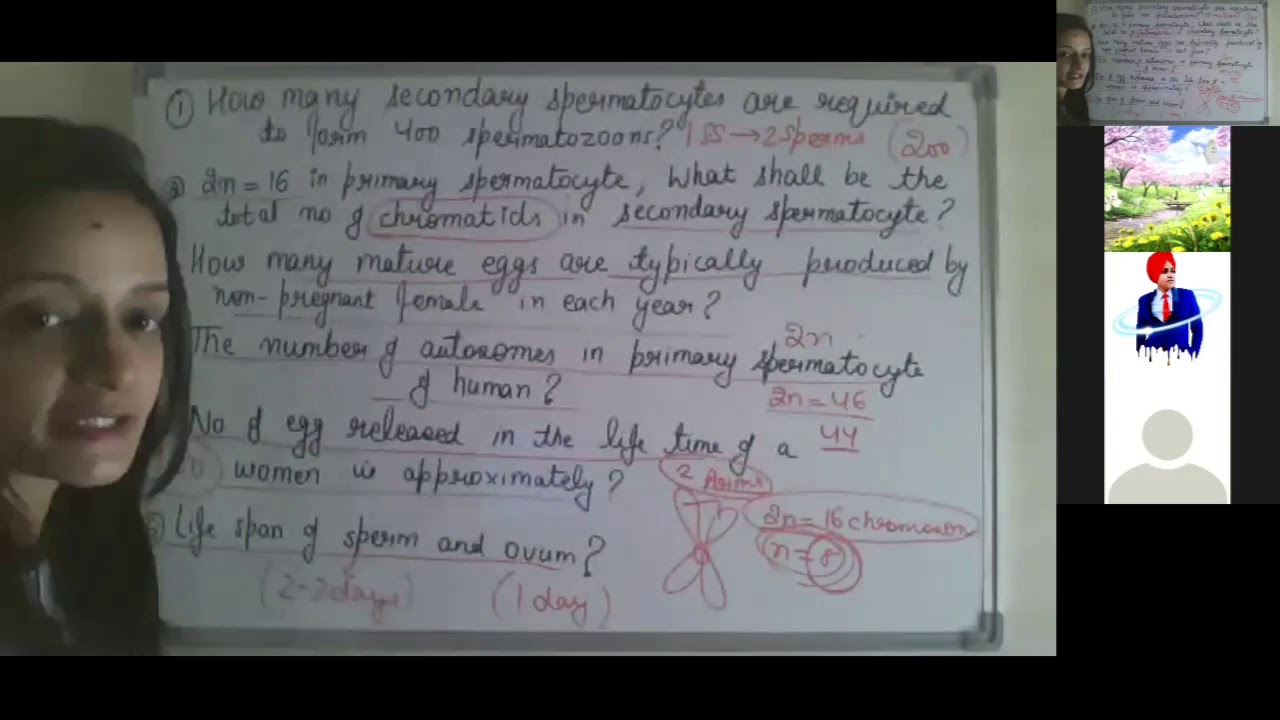 ① How many secondary spermatocytes are required
to form 400 spermatozoons? 1 SS → 2 sperms (200)
2n = 16 in primary spermatocyte, What shall be the
total no of chromatids in secondary spermatocyte?
How many mature eggs are typically produced by
non-pregnant female in each year?
2n
The number of autosomes in primary spermatocyte
of human?
2n = 46
44
No of egg released in the life time of a
women is approximately?
2 Arms
2n = 16 chromosom
n = 8
Life span of sperm and ovum?
(2-3 days) (1 day)